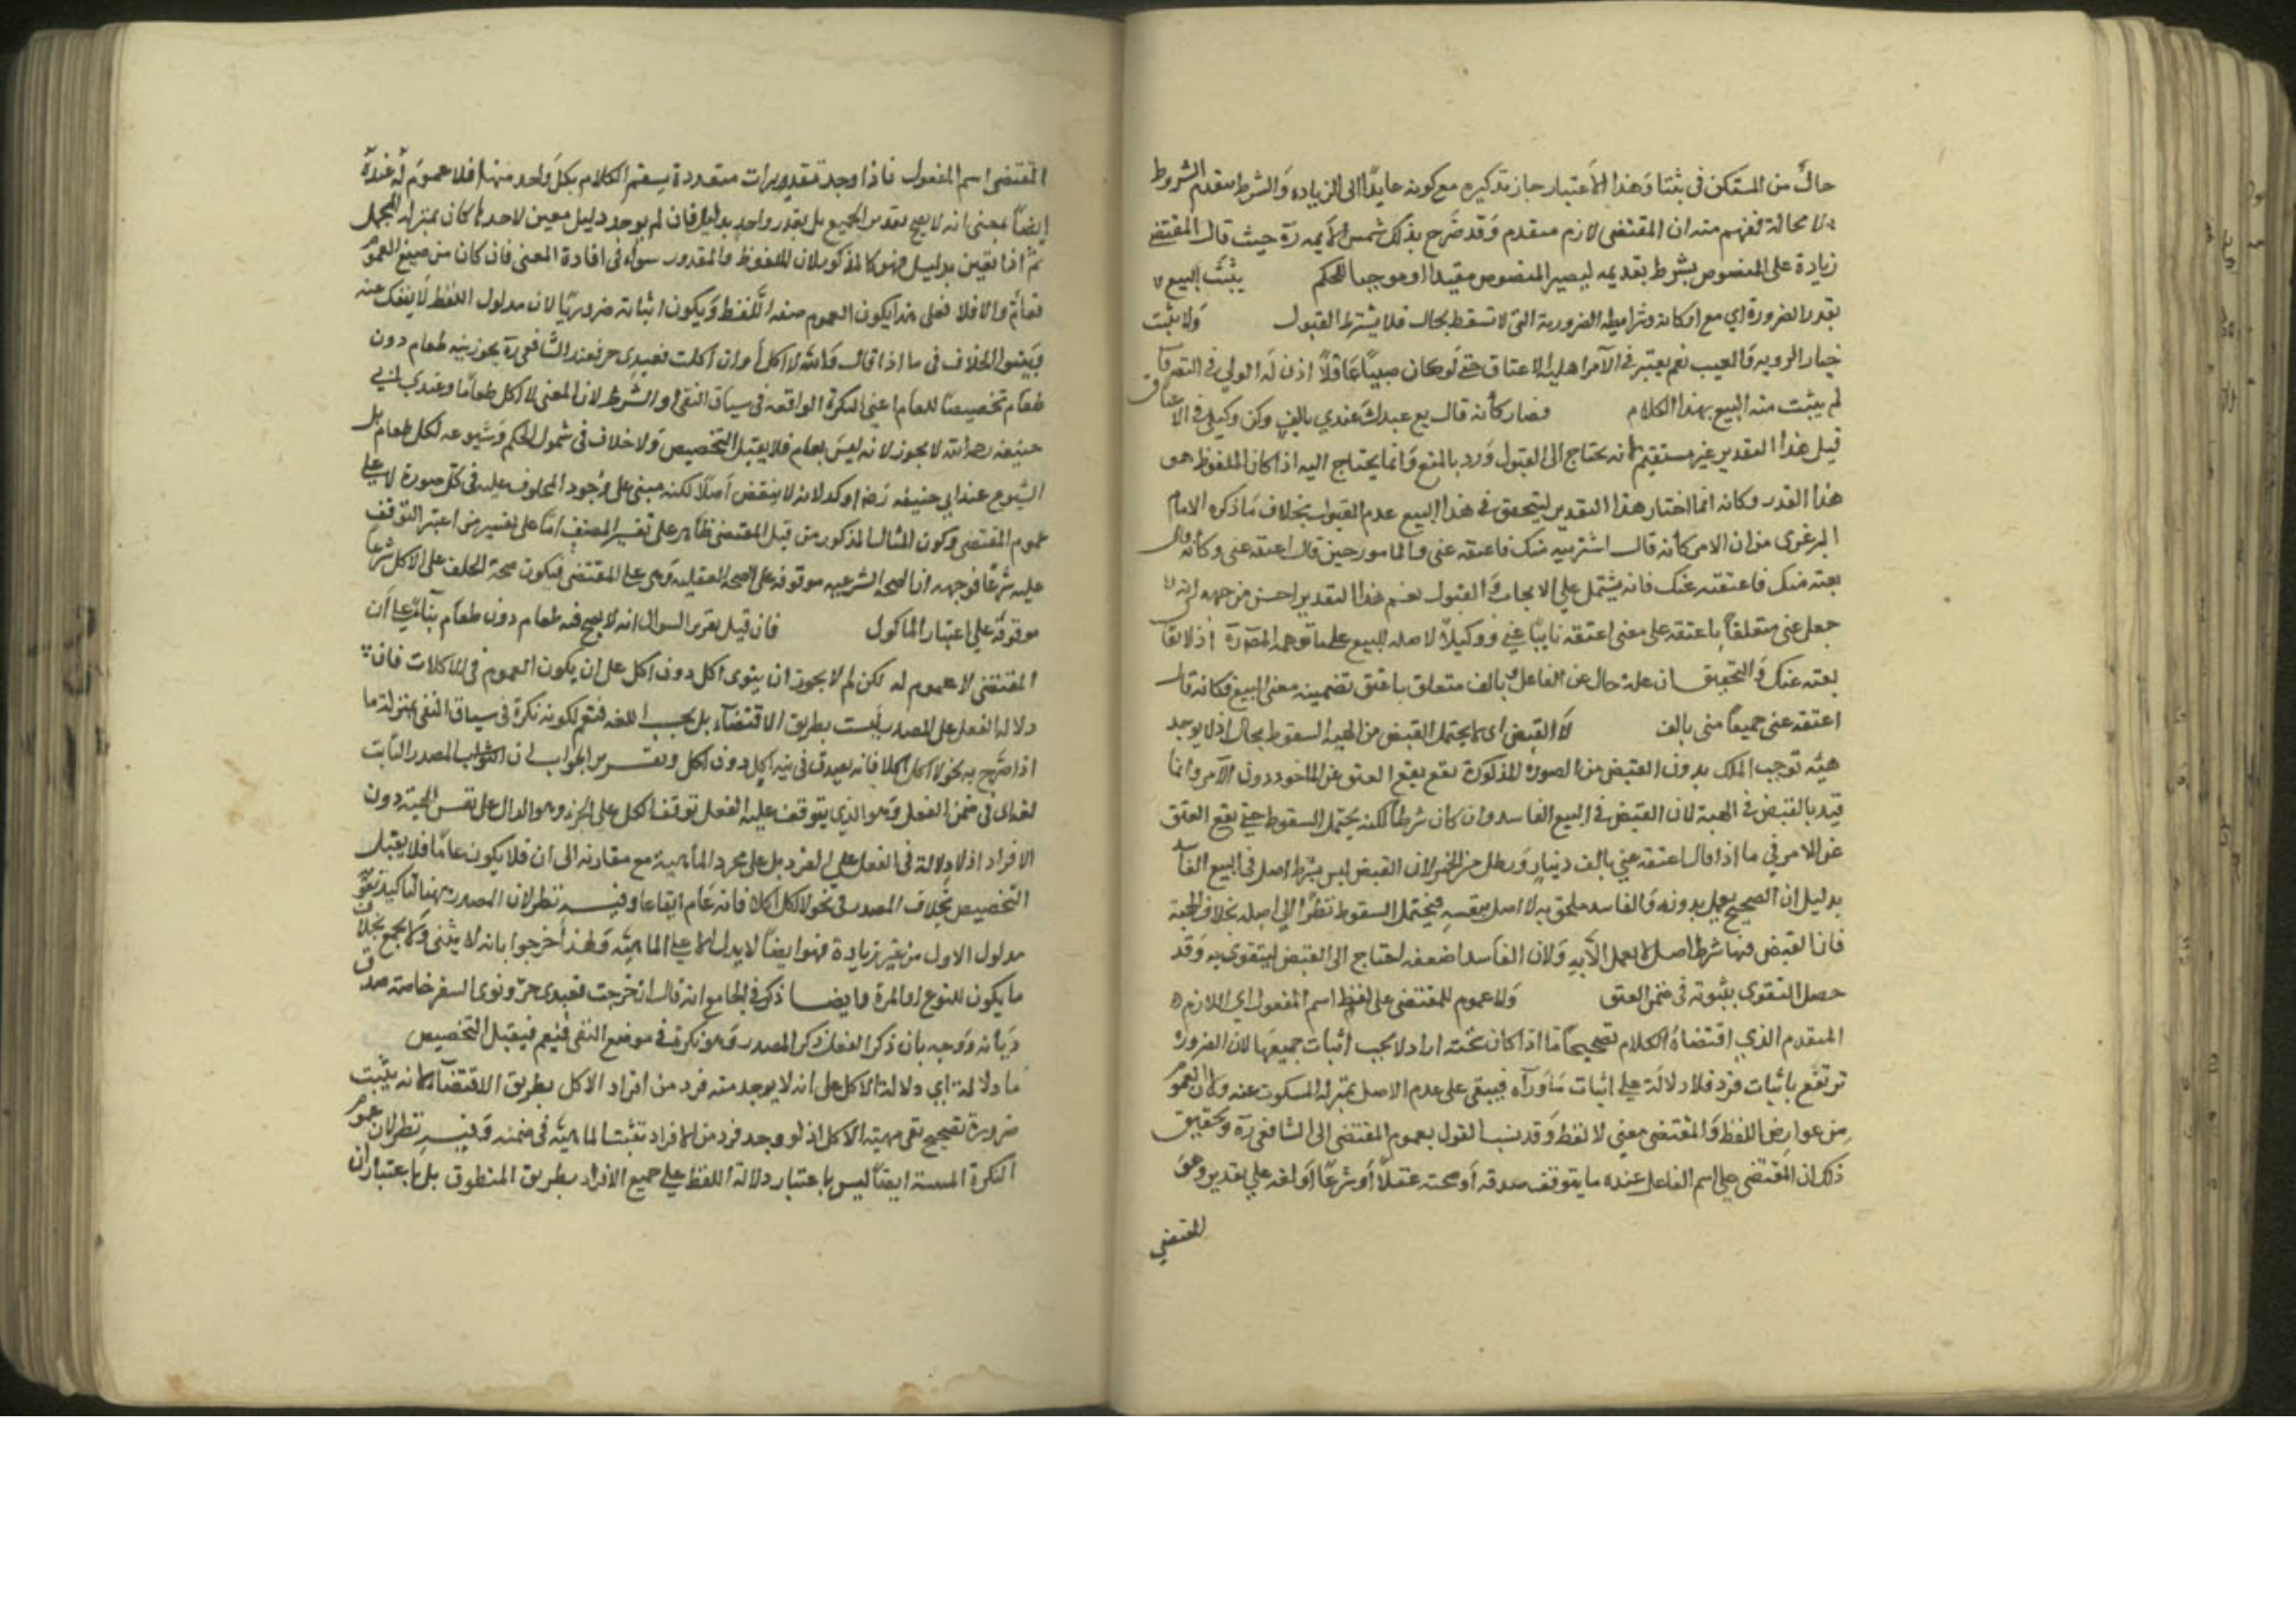 حال من المستكن في ثبتا وهذا الاعتبار جاز تذكيره مع كونه عايدا الى الزياده والشرط متقدم الشروط
لا محالة فيفهم منه ان المقتضى لازم متقدم وقد صرح بذلك شمس الايمه ره حيث قال المقتضى
زيادة على المنصوص يشترط تقديمه ليصير المنصوص مفيدا او موجبا للحكم يثبت البيع
بقدر الضرورة اي مع اركانه وشرايطه الضرورية التي لا تسقط بحال فلا يشترط القبول ولا يثبت
خيار الرويه والعيب نعم يعتبر في الآمر اهلية الاعتاق حتى لو كان صبيا عاقلا اذن له الولي في التصرفات
لم يثبت منه البيع بهذا الكلام فصار كأنه قال بع عبدك عندي بالف وكن وكيلي في الاعتاق
قيل هذا التقدير غير مستقيم لانه يحتاج الى القبول ورد بالمنع وانما يحتاج اليه اذا كان الملفوظ هو
هذا القدر وكانه انما اختار هذا التقدير ليتحقق في هذا البيع عدم القبول بخلاف ما ذكره الامام
البرغرى من ان الامر كأنه قال اشتريته منك فاعتقه عني والمامور حين قال اعتقه عنى وكأنه قال
بعته منك فاعتقته عنك فانه يشتمل علي الايجاب والقبول نعم هذا التقدير احسن من جهه انه لا
جعل عنى متعلقا باعتقه على معنى اعتقه نايبا عني ووكيلا لا صله للبيع على ما توهمه المصورة اذ لا يقال
بعته عنك والتحقيق ان عنى حال عن الفاعل وبالف متعلق باعتق تضمينه معنى البيع فكانه قال
اعتقه عنى جميعا منى بالف لا القبض اى لا يحتمل القبض من الهبه السقوط بحال اذ لا يوجد
هبه توجب الملك بدون القبض من الصورة المذكورة تقع يقع العتق عن المامور دون الآمر وانما
قيد بالقبض في الهبة لان القبض في البيع الفاسد وان كان شرطا لكنه يحتمل السقوط حتى يقع العتق
عن الامر في ما اذا قال اعتقه عني بالف دينار ورطل من الخمر لان القبض ليس بشرط اصلى في البيع الفاسد
بدليل ان الصحيح يعمل بدونه والفاسد ملحق به لا اصل بنفسه فيحتمل السقوط نظرا الى اصله بخلاف الهبة
فان القبض فيها شرط اصلى لا تعمل الا به ولان الفاسد اضعف احتاج الى القبض ليتقوى به وقد
حصل التقوى بثبوته في ضمن العتق ولا عموم للمقتضى على لفظ اسم المفعول اي اللازم
المتقدم الذي اقتضاه الكلام تصحيحا اذا كان تحته افراد لا يجب اثبات جميعها لان الضرورة
ترتفع باثبات فرد فلا دلالة على اثبات ما وراه فيبقى على عدم الاصل بمنزلة المسكوت عنه ولان العموم
من عوارض اللفظ والمقتضى معنى لا لفظ وقد ينسب القول بعموم المقتضى الى الشافعي ره وتحقيق
ذلك ان المقتضى على اسم الفاعل عنده ما يتوقف صدقه أو صحته عقلا أو شرعا أو لغه علي تقدير وهو
المقتضي
المقتضى اسم المفعول فاذا وجد تقديرات متعددة يستقيم الكلام بكل واحد منها فلا عموم له عنده
ايضا بمعنى انه لا يصح تقدير الجميع بل يقدر واحد بدليل فان لم يوجد دليل معين لاحدها كان بمنزلة المجمل
ثم اذا تعين بدليل فهو كالمذكور لان الملفوظ والمقدر سواء في افادة المعنى فان كان من صيغ العموم
فعام والا فلا فعلى هذا يكون العموم صفه اللفظ ويكون اثباته ضروريا لان مدلول اللفظ لا ينفك عنه
ويبتنى الخلاف في ما اذا قال والله لا اكل أو ان اكلت فعبدى حر فعند الشافعي ره يجوز نيه طعام دون
طعام تخصيصا للعام اعنى النكرة الواقعه في سياق النفي او الشرط لان المعنى لا اكل طعاما وعند ابي
حنيفه رحمه الله لا يجوز لانه ليس بعام فلا يقبل التخصيص ولا خلاف في شمول الحكم وشيوعه لكل طعام بل
الشيوع عند ابي حنيفه رضه اوكد لانه لا ينقض أصلا لكنه مبنى على وجود المحلوف عليه في كل صورة لا على
عموم المقتضى وكون المثال المذكور من قبل المقتضى ظاهر على تفسير المصنف اما على تفسير من اعتبر التوقف
عليه شرعا فوجهه ان الصحة الشرعيه موقوفه على الصحه العقليه وهى على المقتضى فيكون صحة الحلف على الاكل شرعا
موقوفه علي اعتبار الماكول فان قيل تقرير السوال انه لا يصح فيه طعام دون طعام بناء علي أن
المقتضى لا عموم له لكن لم لا يجوز ان ينوى اكل دون اكل على ان يكون العموم في الاكلات فان
دلالة الفعل على المصدر ليست بطريق الاقتضاء بل بحسب اللغه فيعم لكونه نكرة في سياق النفى بمنزلة ما
اذا صرح به نحو لا اكل اكلا فانه يصدق في نيه اكل دون اكل وتقرير الجواب ان المصدر الثابت
لغه اى في ضمن الفعل وهو الذي يتوقف عليه الفعل توقف الكل على الجزء وهو الدال على نفس المهية دون
الافراد اذ لا دلالة في الفعل على الفرد بل على مجرد الماهية مع مقارنه الى ان فلا يكون عاما فلا يقبل
التخصيص بخلاف المصدر في نحو لا اكل اكلا فانه عام اتفاعا وفيه نظر لان المصدر ههنا لتاكيد تقوية
مدلول الاول من غير زيادة فهو ايضا لا يدل الا على الماهيه ولهذا أخرجوا بانه لا يثنى ولا يجمع بخلاف
ما يكون للنوع او المرة وايضا ذكر في الجامع انه قال ان خرجت فعبدى حر ونوى السفر خاصه صدق
ديانه ووجه بان ذكر الفعل ذكر المصدر وهو نكرة في موضع النفى فيعم فيقبل التخصيص
ما دلالة اي دلالة الاكل على انه لا يوجد منه فرد من افراد الاكل بطريق الاقتضاء لانه يثبت
ضرورة تصحيح نفى مهية الاكل اذ لو وجد فرد من الافراد تثبت الماهيه في ضمنه وفيه نظر لان عموم
النكرة المنفية ايضا ليس باعتبار دلالة اللفظ على جميع الافراد بطريق المنطوق بل باعتبار ان